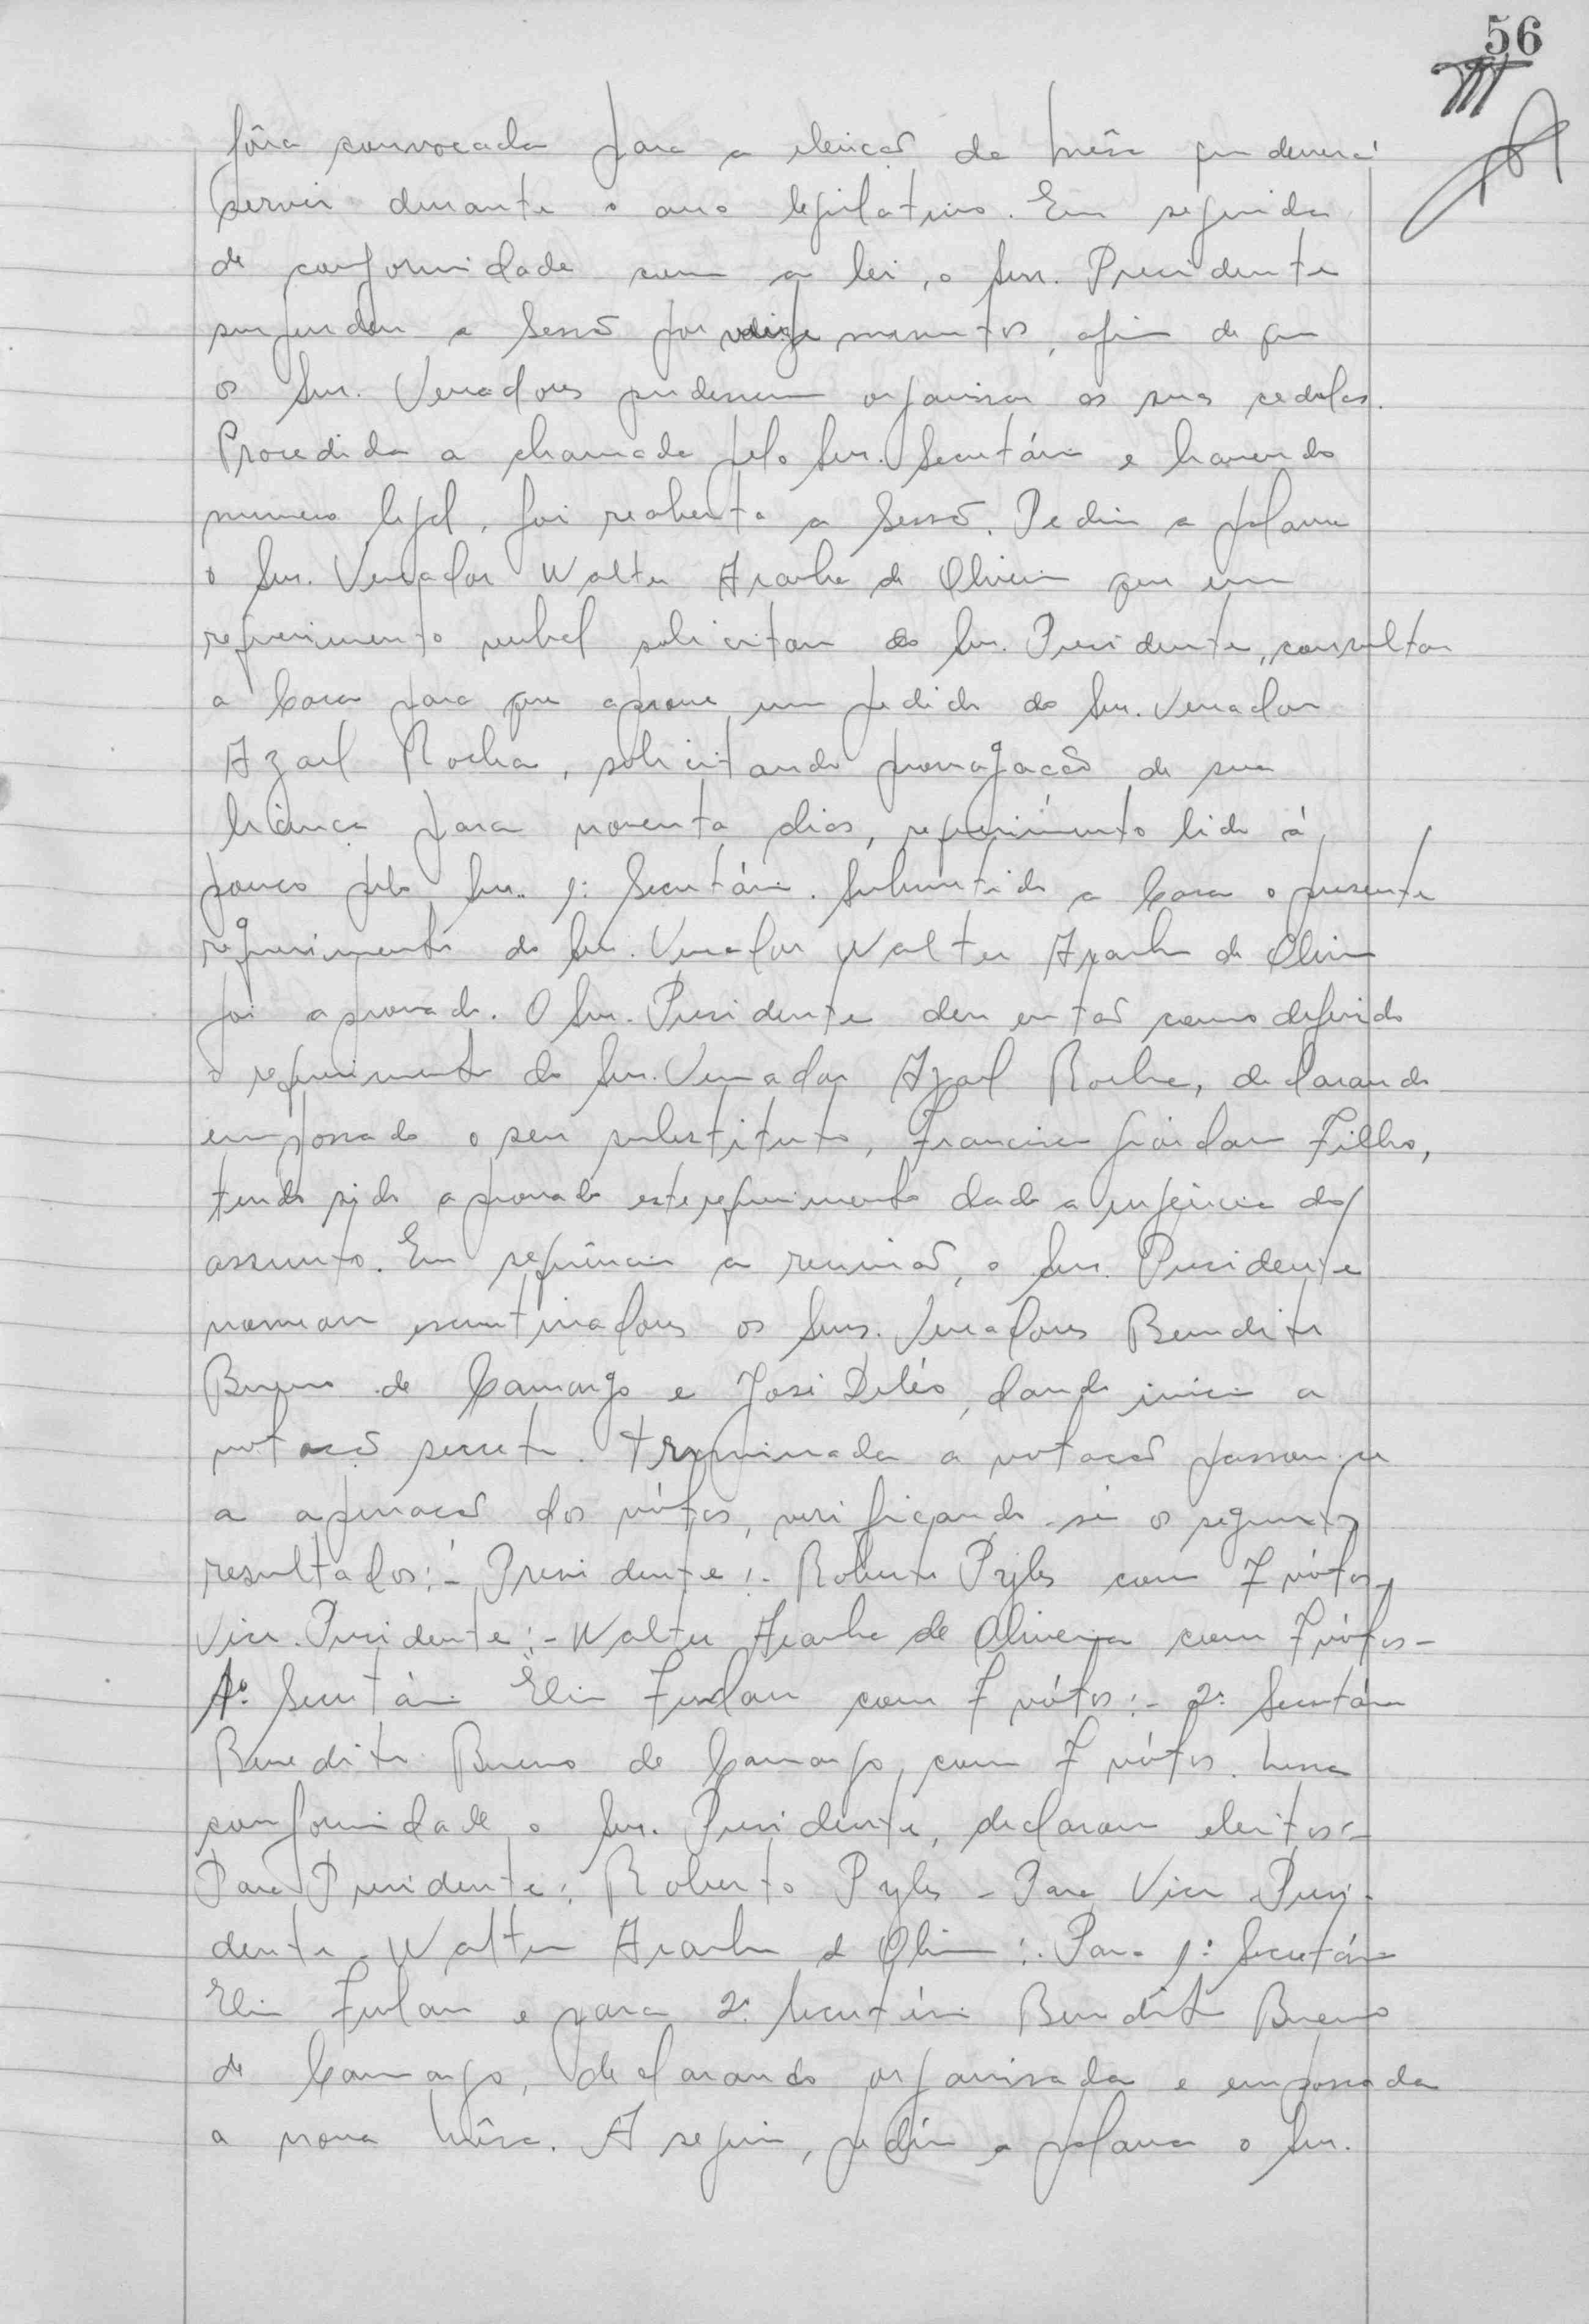 56
fôra convocada para a eleicão da mêsa que deverá
servir durante o ano legislativo. Em seguida
de conformidade com a lei, o Snr. Presidente
suspendeu a Sessão por minutos, afim de que
os Snr. Vereadores pudessem organisar as suas cedulas.
Procedida a chamada pelo Snr. Secretário e havendo
numero legal, foi reaberta a Sessão. Pediu a palavra
o Snr. Vereador Walter Aranha de Oliveira que em
requerimento verbal solicitou ao Snr. Presidente, consultar
a Casa para que aprove um pedido do Snr. Vereador
Azael Rocha, solicitando prorrogacão de sua
licença para noventa dias, requerimento lido á
pouco pelo Snr. 1º Secretário. Submetido a Casa o presente
requerimento do Snr. Vereador Walter Aranha de Oliveira
foi aprovado. O Snr. Presidente deu entaõ como deferido
o requerimento do Snr. Vereador Azael Rocha, declarando
empossado o seu substituto, Francisco Filho,
tendo sido aprovado este requerimento dado a urgência do
assunto. Em sequência a reuniaõ, o Snr. Presidente
nomeou escrutinadores os Snrs. Vereadores Benedito
Bueno de Camargo e José Deléo, dando inicio a
votacaõ secreta. Terminada a votacaõ passou-se
a apuracaõ dos vótos, verificando-se os seguintes
resultados:- Presidente:- Roberto Pyles com 7 vótos,
Vice-Presidente:- Walter Aranha de Oliveira com 7 vótos-
1º Secretário Elio Furlan com 7 vótos:- 2º Secretário
Benedito Bueno de Camargo, com 7 vótos. Nessa
conformidade o Snr. Presidente, declarou eleitos:-
Para Presidente: Roberto Pyles - Para Vice-Presi-
dente - Walter Aranha de Oliveira:- Para 1º Secretário
Elio Furlan e para 2º Secretário Benedito Bueno
de Camargo, declarando organisada e empossada
a nova mêsa. A seguir, pediu a palavra o Snr.